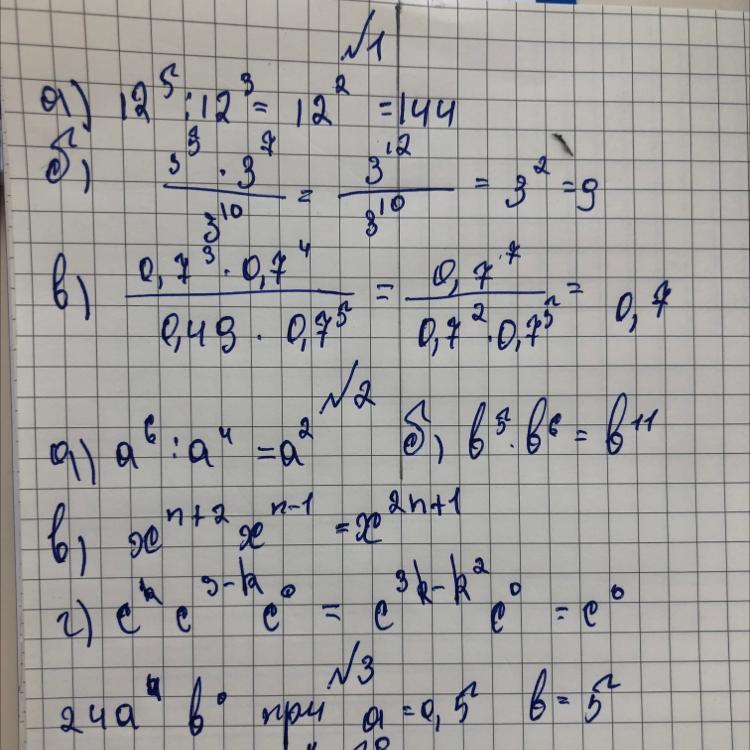 №1
а) 12⁵ : 12³ = 12² = 144
б) (3⁵ · 3⁷)/3¹⁰ = 3¹²/3¹⁰ = 3² = 9
в) (0,7³ · 0,7⁴)/(0,49 · 0,7⁵) = 0,7⁷/(0,7² · 0,7⁵) = 0,7
№2
а) a⁶ : a⁴ = a² б) b⁵ · b⁶ = b¹¹
в) xⁿ⁺² xⁿ⁻¹ = x²ⁿ⁺¹
г) cᵏ c³⁻ᵏ c⁰ = c^(3k-k²) c⁰ = c⁰
№3
24a⁴ b⁰ при a = 0,5 b = 5